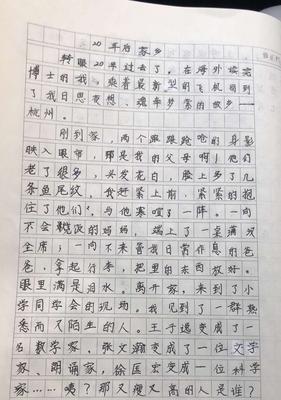 20年后家乡
转眼20年过去了。在海外读完
博士的我，乘着最新型的飞机回到
了我日思夜想、魂牵梦萦的故乡—
杭州。
刚到家，两个踉踉跄跄的身影
映入眼帘，那是我的父母啊！他们
老了很多，头发花白，脸上多了几
条鱼尾纹，我赶紧上期，紧紧的抱
住了他们。与他寒喧了一阵。一向
不会做饭的妈妈，端上了一桌满汉
全席；一向不来管我日常作息的爸
爸，拿起行李，把里的东西放好。
眼里满是泪水。离开家，来到了小
学同学会的现场。我见到了一群熟
悉而又陌生的人。王子遥变成了一
名数学家，张文瀚变成了一位文学
家、朗诵家，徐匡宏变成一位科学
家……咦？那又瘦又高的人是谁？